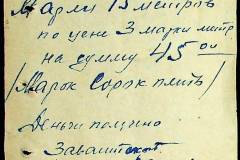 Марли 15 метров
по цене 3 марки метр
на сумму 45 00
(Марок Сорок пять)
Деньги получено